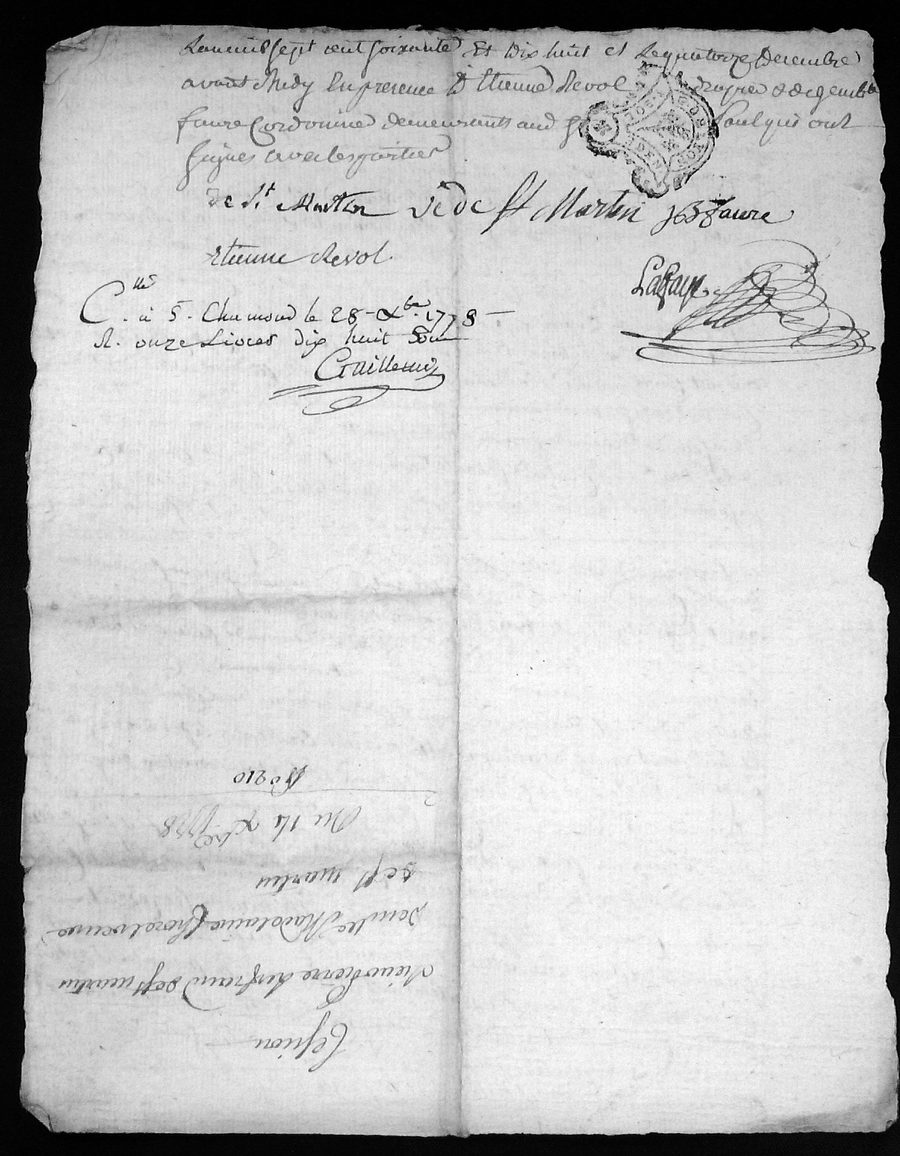 Lan mil sept cent soixante Et dix huit et Le quatorze Decembre
avant midy En presence D'Etienne Revol
faure Cordonnier demeurants aud St Paul qui ont
signés avec les parties
De St Martin Ve De St Martin jb faure
Etienne Revol
Lafaye
Clle. à S. Chamond le 28 Xbre. 1778
R. onze Livres dix huit Sous
Cession
Sieur Pierre Bertrand de St martin
de St martin
Du 14 Xbre 1778
No 210